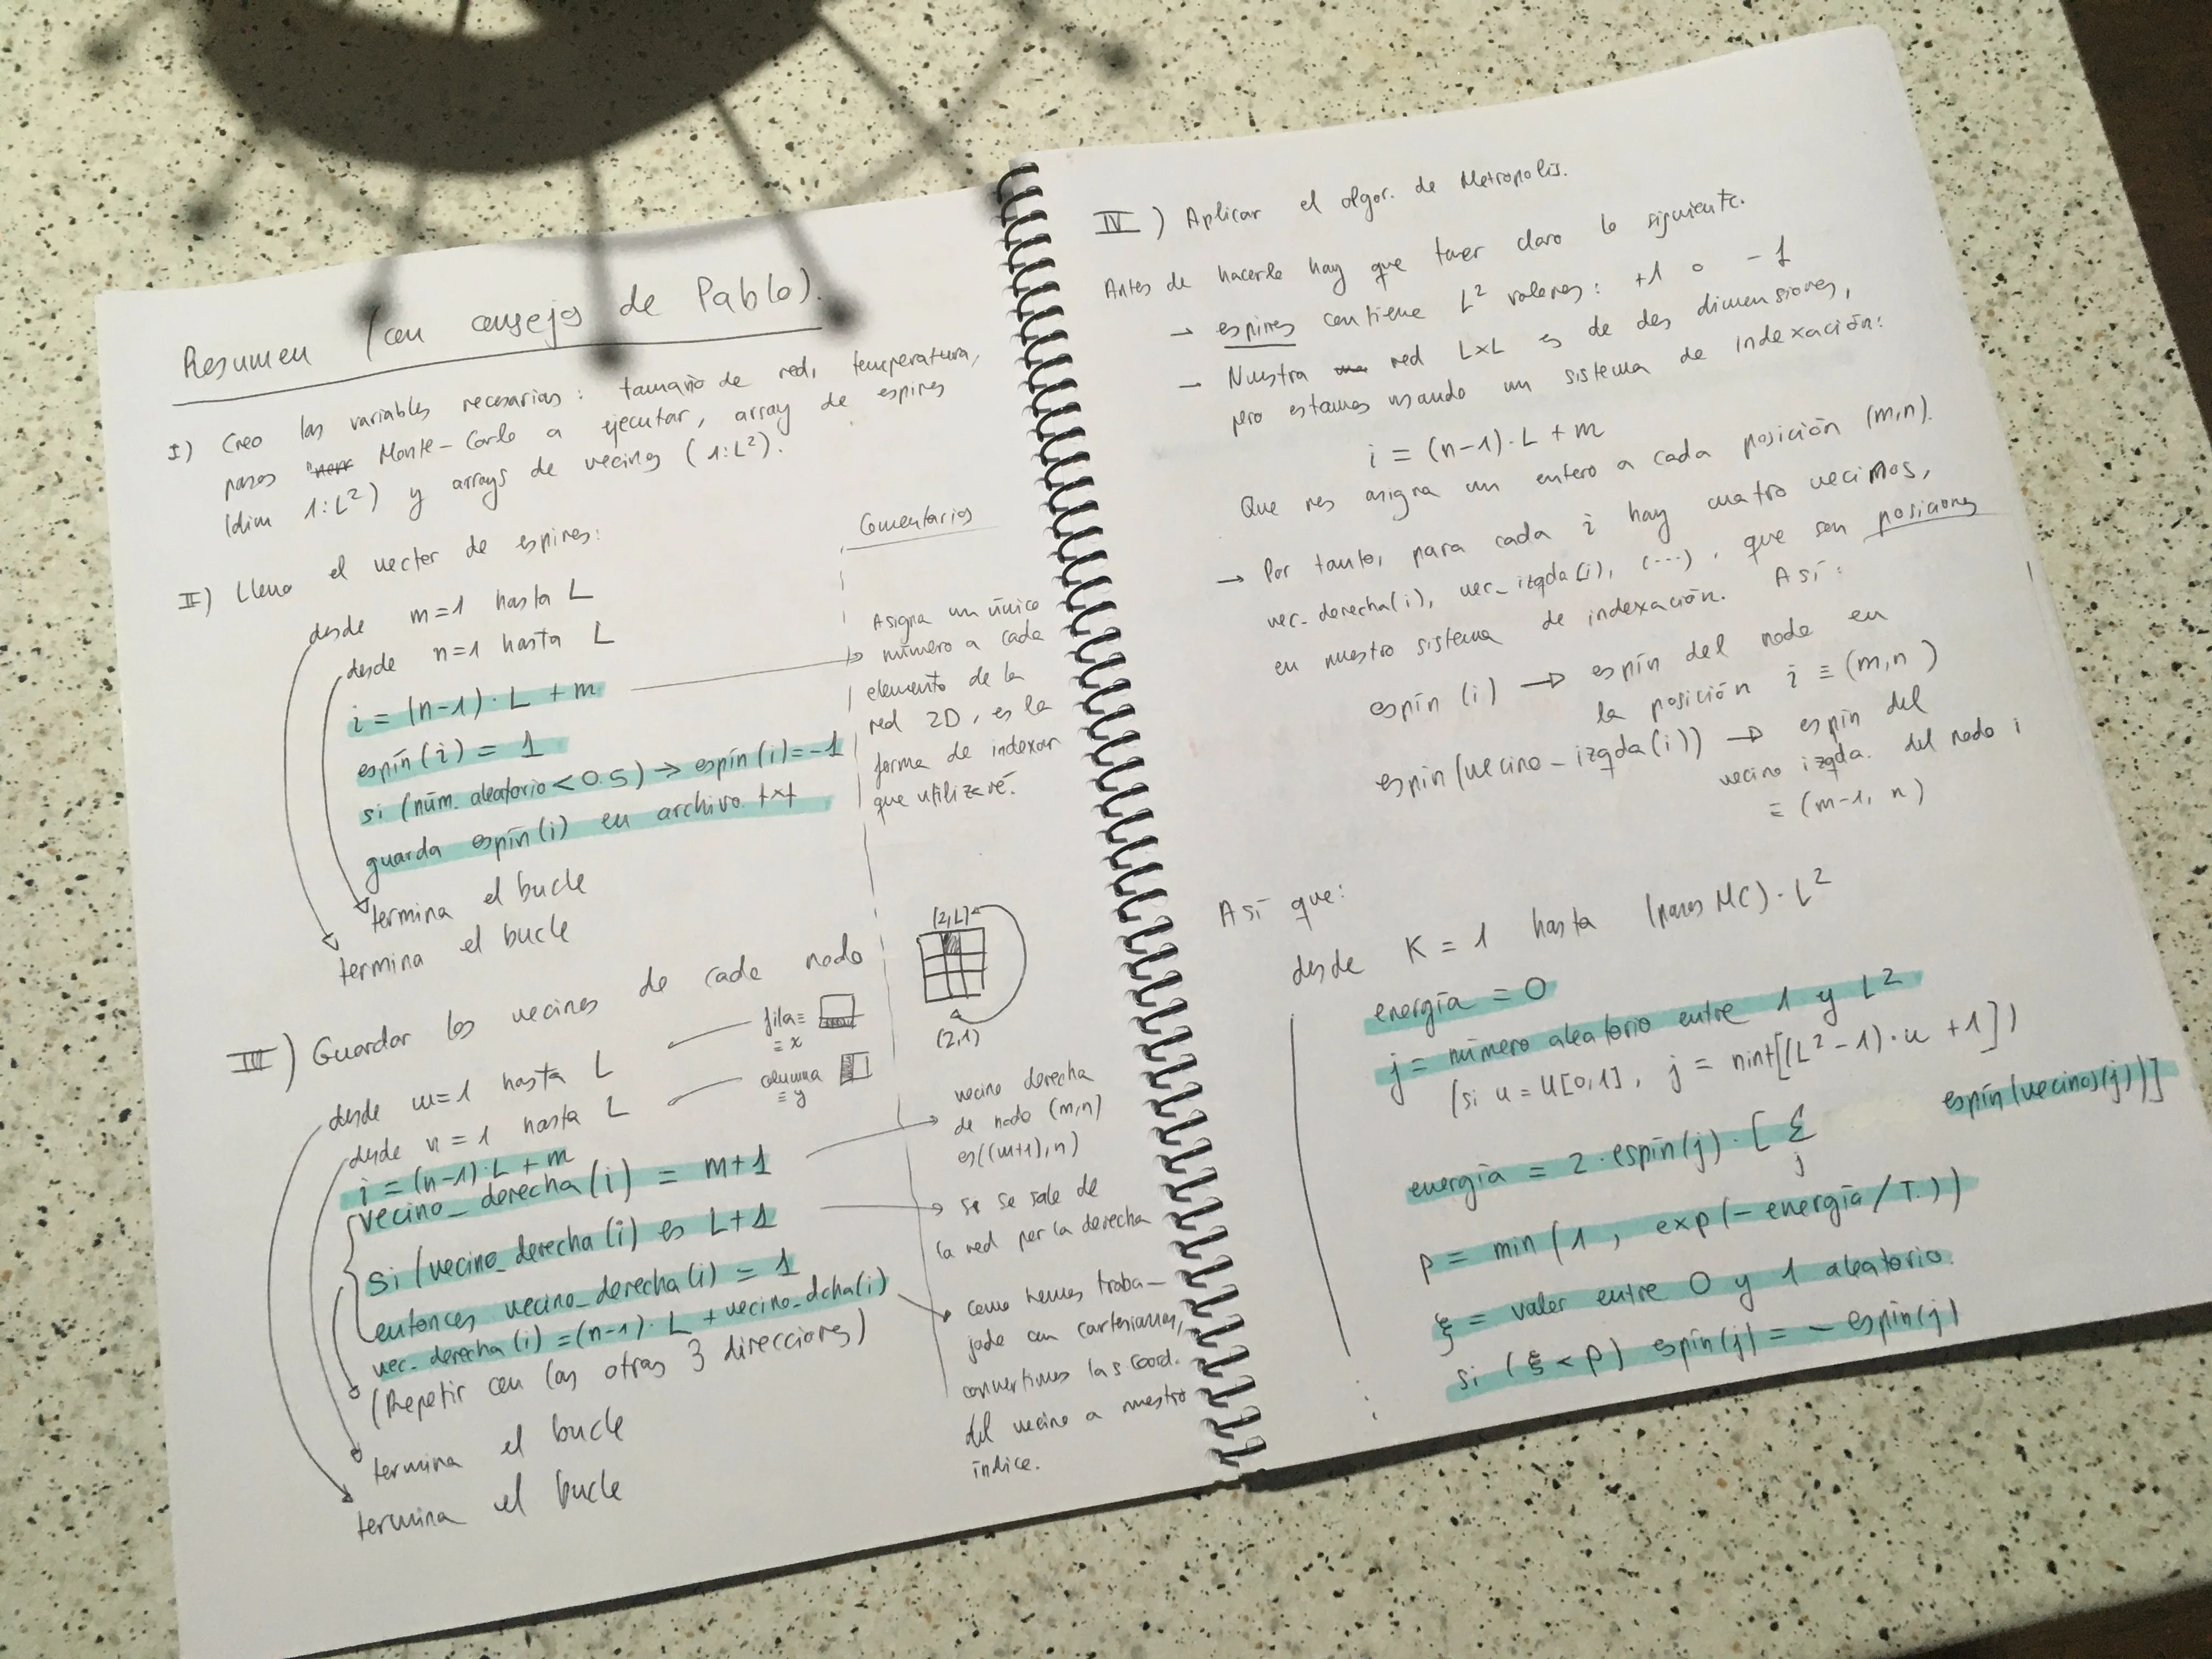 Resumen (con consejos de Pablo).
I) Creo las variables necesarias: tamaño de red, temperatura,
pasos Monte-Carlo a ejecutar, array de espines
(dim 1:L²) y arrays de vecinos (1:L²).
II) Lleno el vector de espines:
desde m=1 hasta L
desde n=1 hasta L
i = (n-1)·L + m
espín(i) = 1
si (núm. aleatorio < 0.5) → espín(i)=-1
guarda espín(i) en archivo txt
termina el bucle
termina el bucle
Comentarios
Asigna un único
número a cada
elemento de la
red 2D, es la
forma de indexar
que utilizaré.
III) Guardar los vecinos de cada nodo
desde m=1 hasta L
fila≡
≡ x
desde n=1 hasta L
columna
≡ y
(2,L)
(2,1)
i = (n-1)·L + m
vecino_derecha(i) = m+1
si (vecino_derecha(i) es L+1
entonces vecino_derecha(i) = 1
vec_derecha(i) = (n-1)·L + vecino_dcha(i)
(Repetir con las otras 3 direcciones)
termina el bucle
termina el bucle
vecino derecha
de nodo (m,n)
es((m+1),n)
si se sale de
la red por la derecha
como hemos traba-
jado con cartesianas,
convertimos las coord.
del vecino a nuestro
índice.
IV) Aplicar el algor. de Metropolis.
Antes de hacerlo hay que tener claro lo siguiente.
→ espines contiene L² valores: +1 o -1
→ Nuestra red LxL es de dos dimensiones,
pero estamos usando un sistema de indexación:
i = (n-1)·L + m
Que nos asigna un entero a cada posición (m,n).
→ Por tanto, para cada i hay cuatro vecinos,
vec_derecha(i), vec_izqda(i), (...), que son posiciones
en nuestro sistema de indexación. Así:
espín (i) → espín del nodo en
la posición i ≡ (m,n)
espín(vecino_izqda(i)) → espín del
vecino izqda. del nodo i
≡ (m-1, n)
Así que:
desde K = 1 hasta (pasos MC)·L²
energía = 0
j = número aleatorio entre 1 y L²
(si u = U[0,1], j = nint[(L²-1)·u +1])
energía = 2·espín(j)·[ Σ espín(vecinos(j))]
j
p = min(1, exp(-energía/T.))
ξ = valor entre 0 y 1 aleatorio.
si (ξ < p) espín(j) = - espín(j)